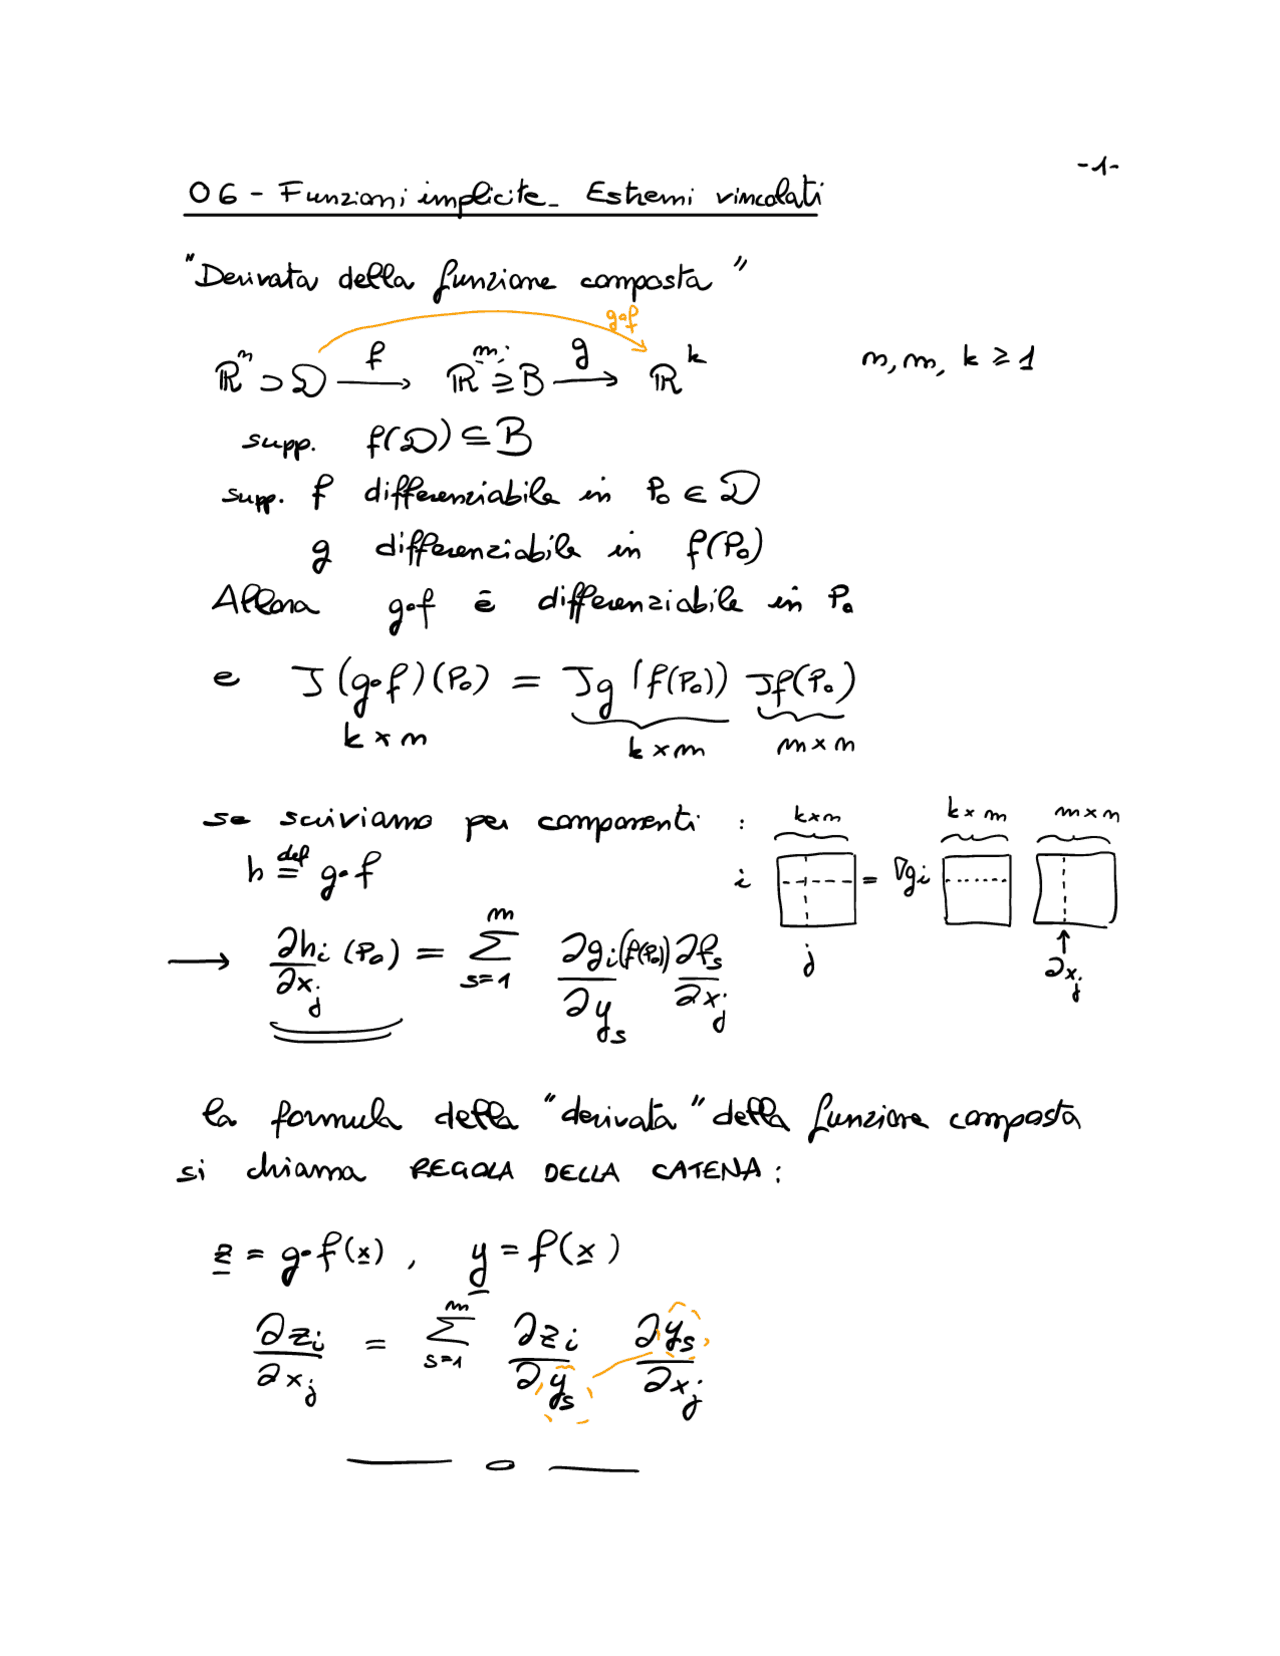 -1-
06 - Funzioni implicite - Estremi vincolati
"Derivata della funzione composta"
g∘f
ℝⁿ ⊃ D —f→ ℝᵐ ⊇ B —g→ ℝᵏ n, m, k ≥ 1
supp. f(D) ⊆ B
supp. f differenziabile in P₀ ∈ D
g differenziabile in f(P₀)
Allora g∘f è differenziabile in P₀
e J(g∘f)(P₀) = Jg(f(P₀)) Jf(P₀)
k × n k × m m × n
se scriviamo per componenti : k×n k×m m×n
h ≝ g∘f i = ∇gi
→ ∂hi/∂xj (P₀) = Σ_{s=1}^{m} ∂gi/∂ys (f(P₀)) ∂fs/∂xj j ∂xj
la formula della "derivata" della funzione composta
si chiama REGOLA DELLA CATENA :
z = g∘f(x) , y = f(x)
∂zi/∂xj = Σ_{s=1}^{m} ∂zi/∂ys ∂ys/∂xj